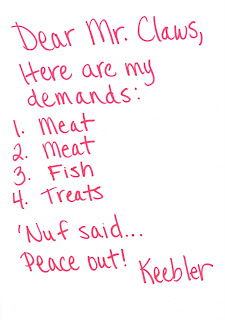 Dear Mr. Claws,
Here are my
demands:
1. Meat
2. Meat
3. Fish
4. Treats
'Nuf said...
Peace out!
Keebler